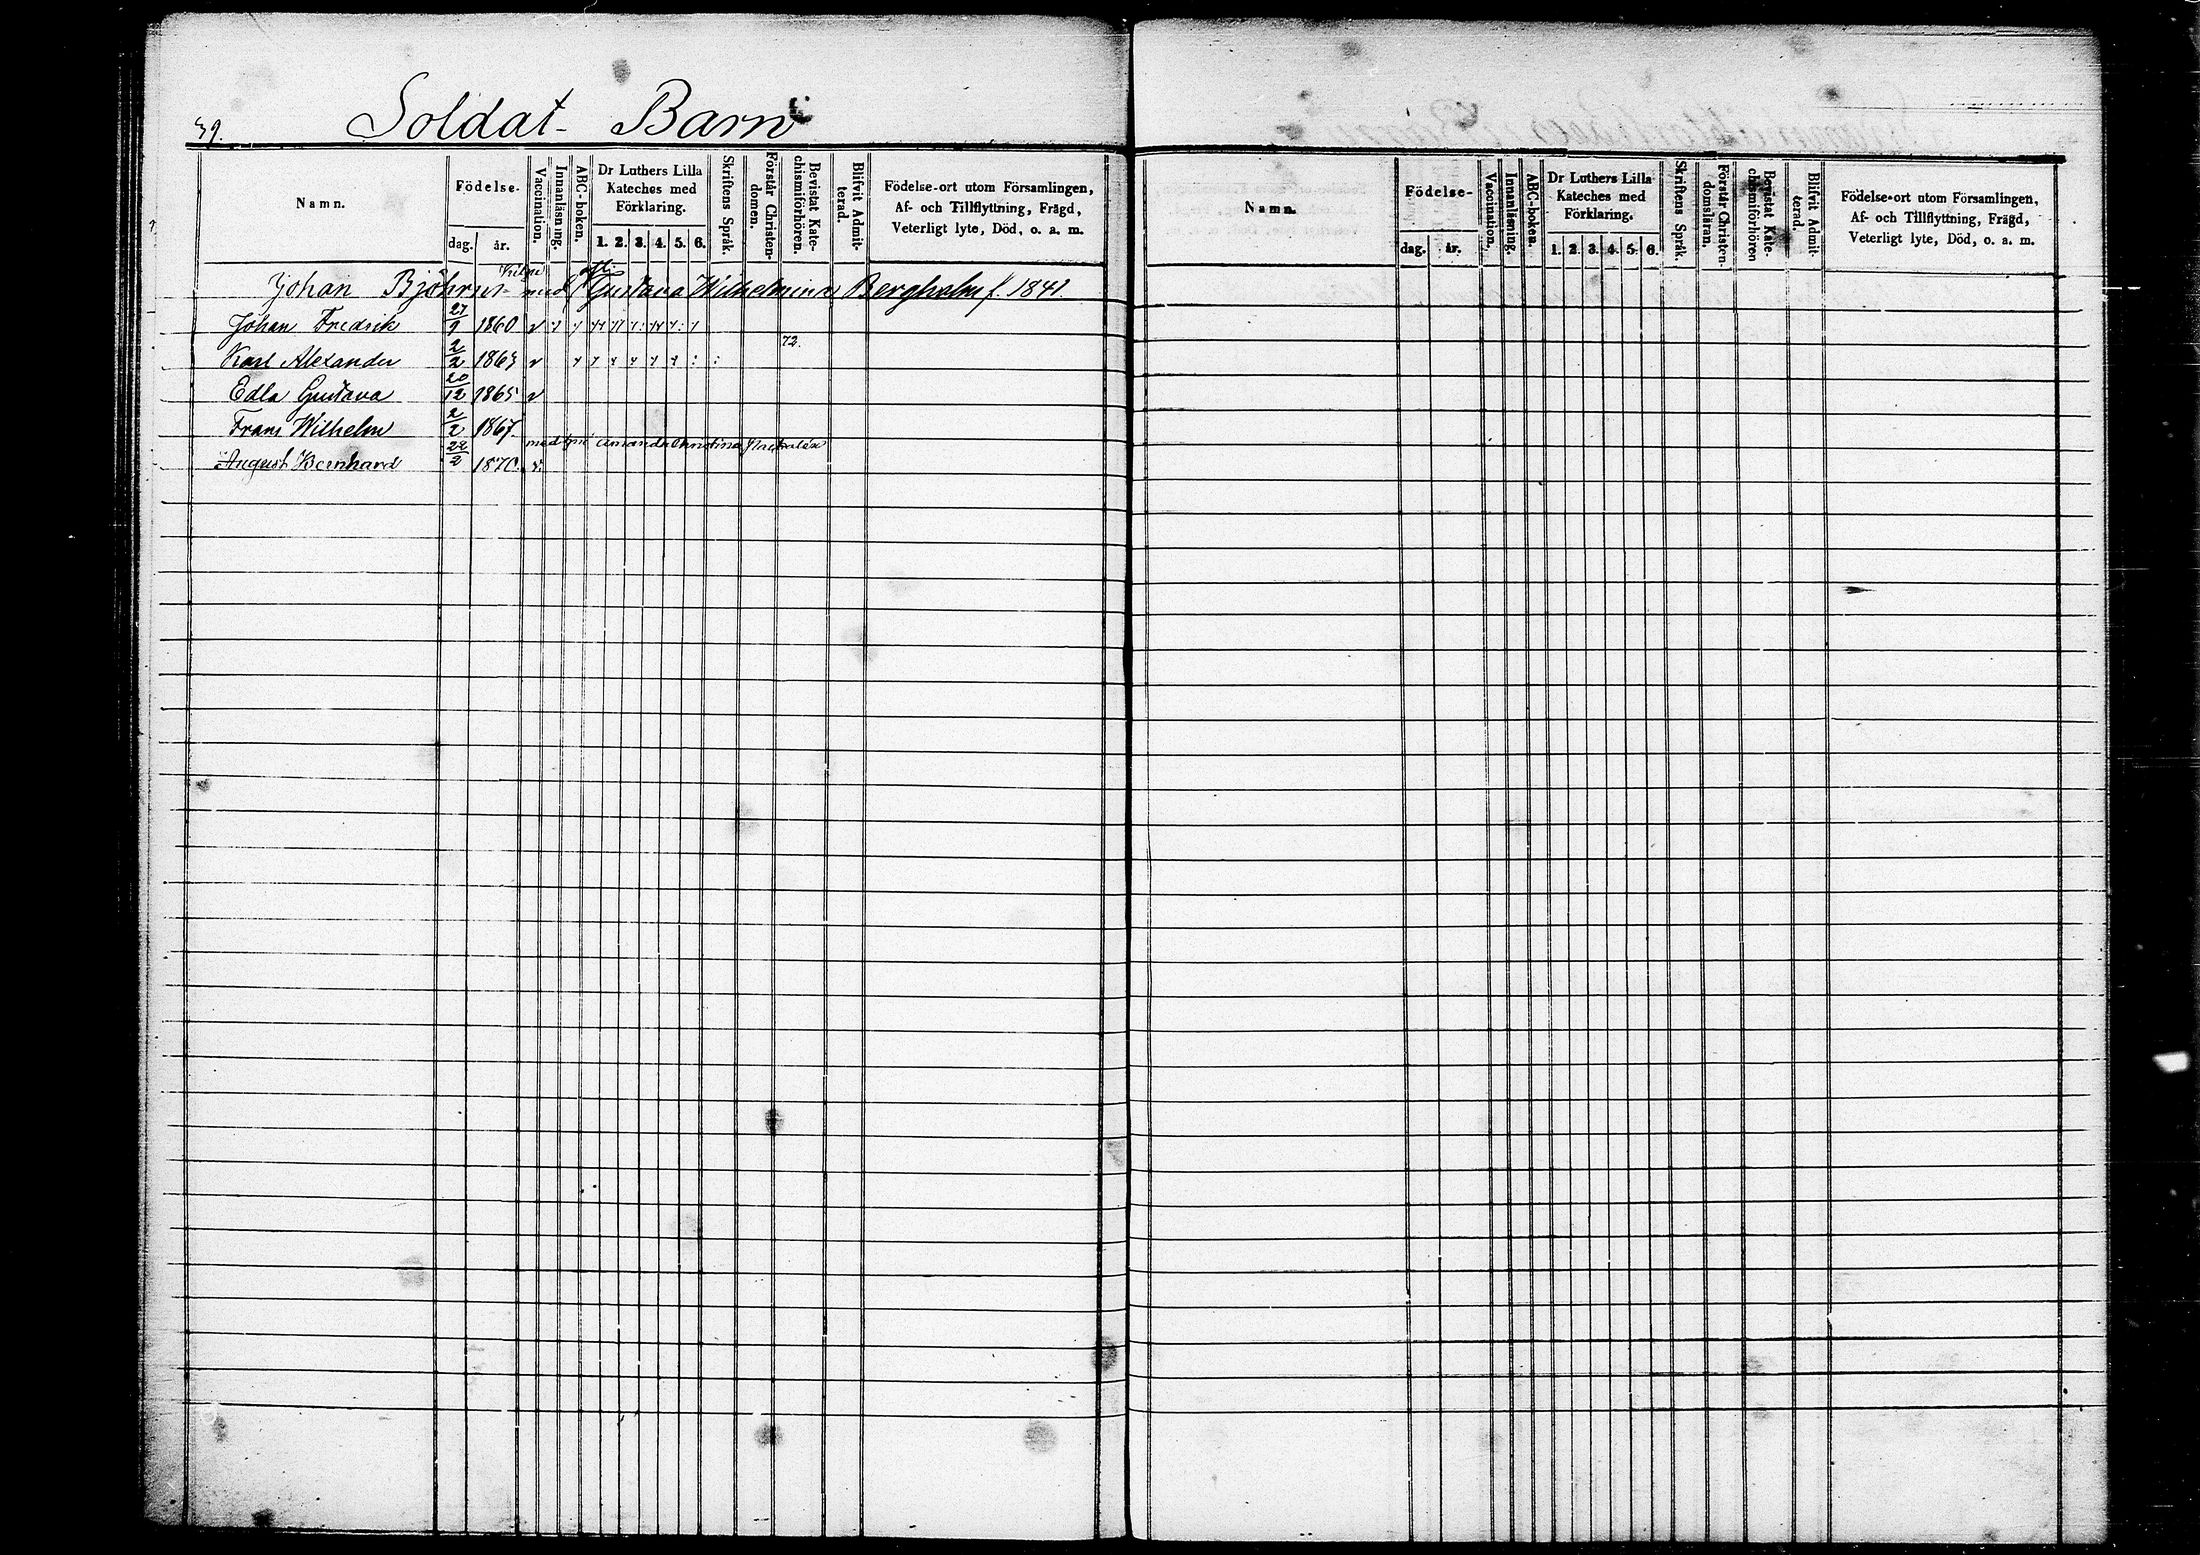 39.
Soldat- Barn
Namn.
Födelse-
dag. år.
Vaccination.
Innanläsning.
ABC-boken.
Dr Luthers Lilla
Kateches med
Förklaring.
1. 2. 3. 4. 5. 6.
Skriftens Språk.
Förstår Christen-
domen.
Bevistat Kate-
chismiförhören.
Blifvit Admit-
terad.
Födelse-ort utom Församlingen,
Af- och Tillflyttning, Frägd,
Veterligt lyte, Död, o. a. m.
Johan med Gustava Wilhelmina Bergholm f. 1841.
Johan Fredrik 27/9 1860 v
72.
Karl Alexander 2/2 1863 v
Edla Gustava 20/12 1865 v
Frans Wilhelm 2/2 1867.
med Amanda Christina
August Bernhard 22/2 1870. v.
Namn.
Födelse-
dag. år.
Vaccination.
Innanläsning.
ABC-boken.
Dr Luthers Lilla
Kateches med
Förklaring.
1. 2. 3. 4. 5. 6.
Skriftens Språk.
Förstår Christen-
domsläran.
Bevistat Kate
chismiförhören
Blifvit Admit-
terad.
Födelse-ort utom Församlingen,
Af- och Tillflyttning, Frägd,
Veterligt lyte, Död, o. a. m.